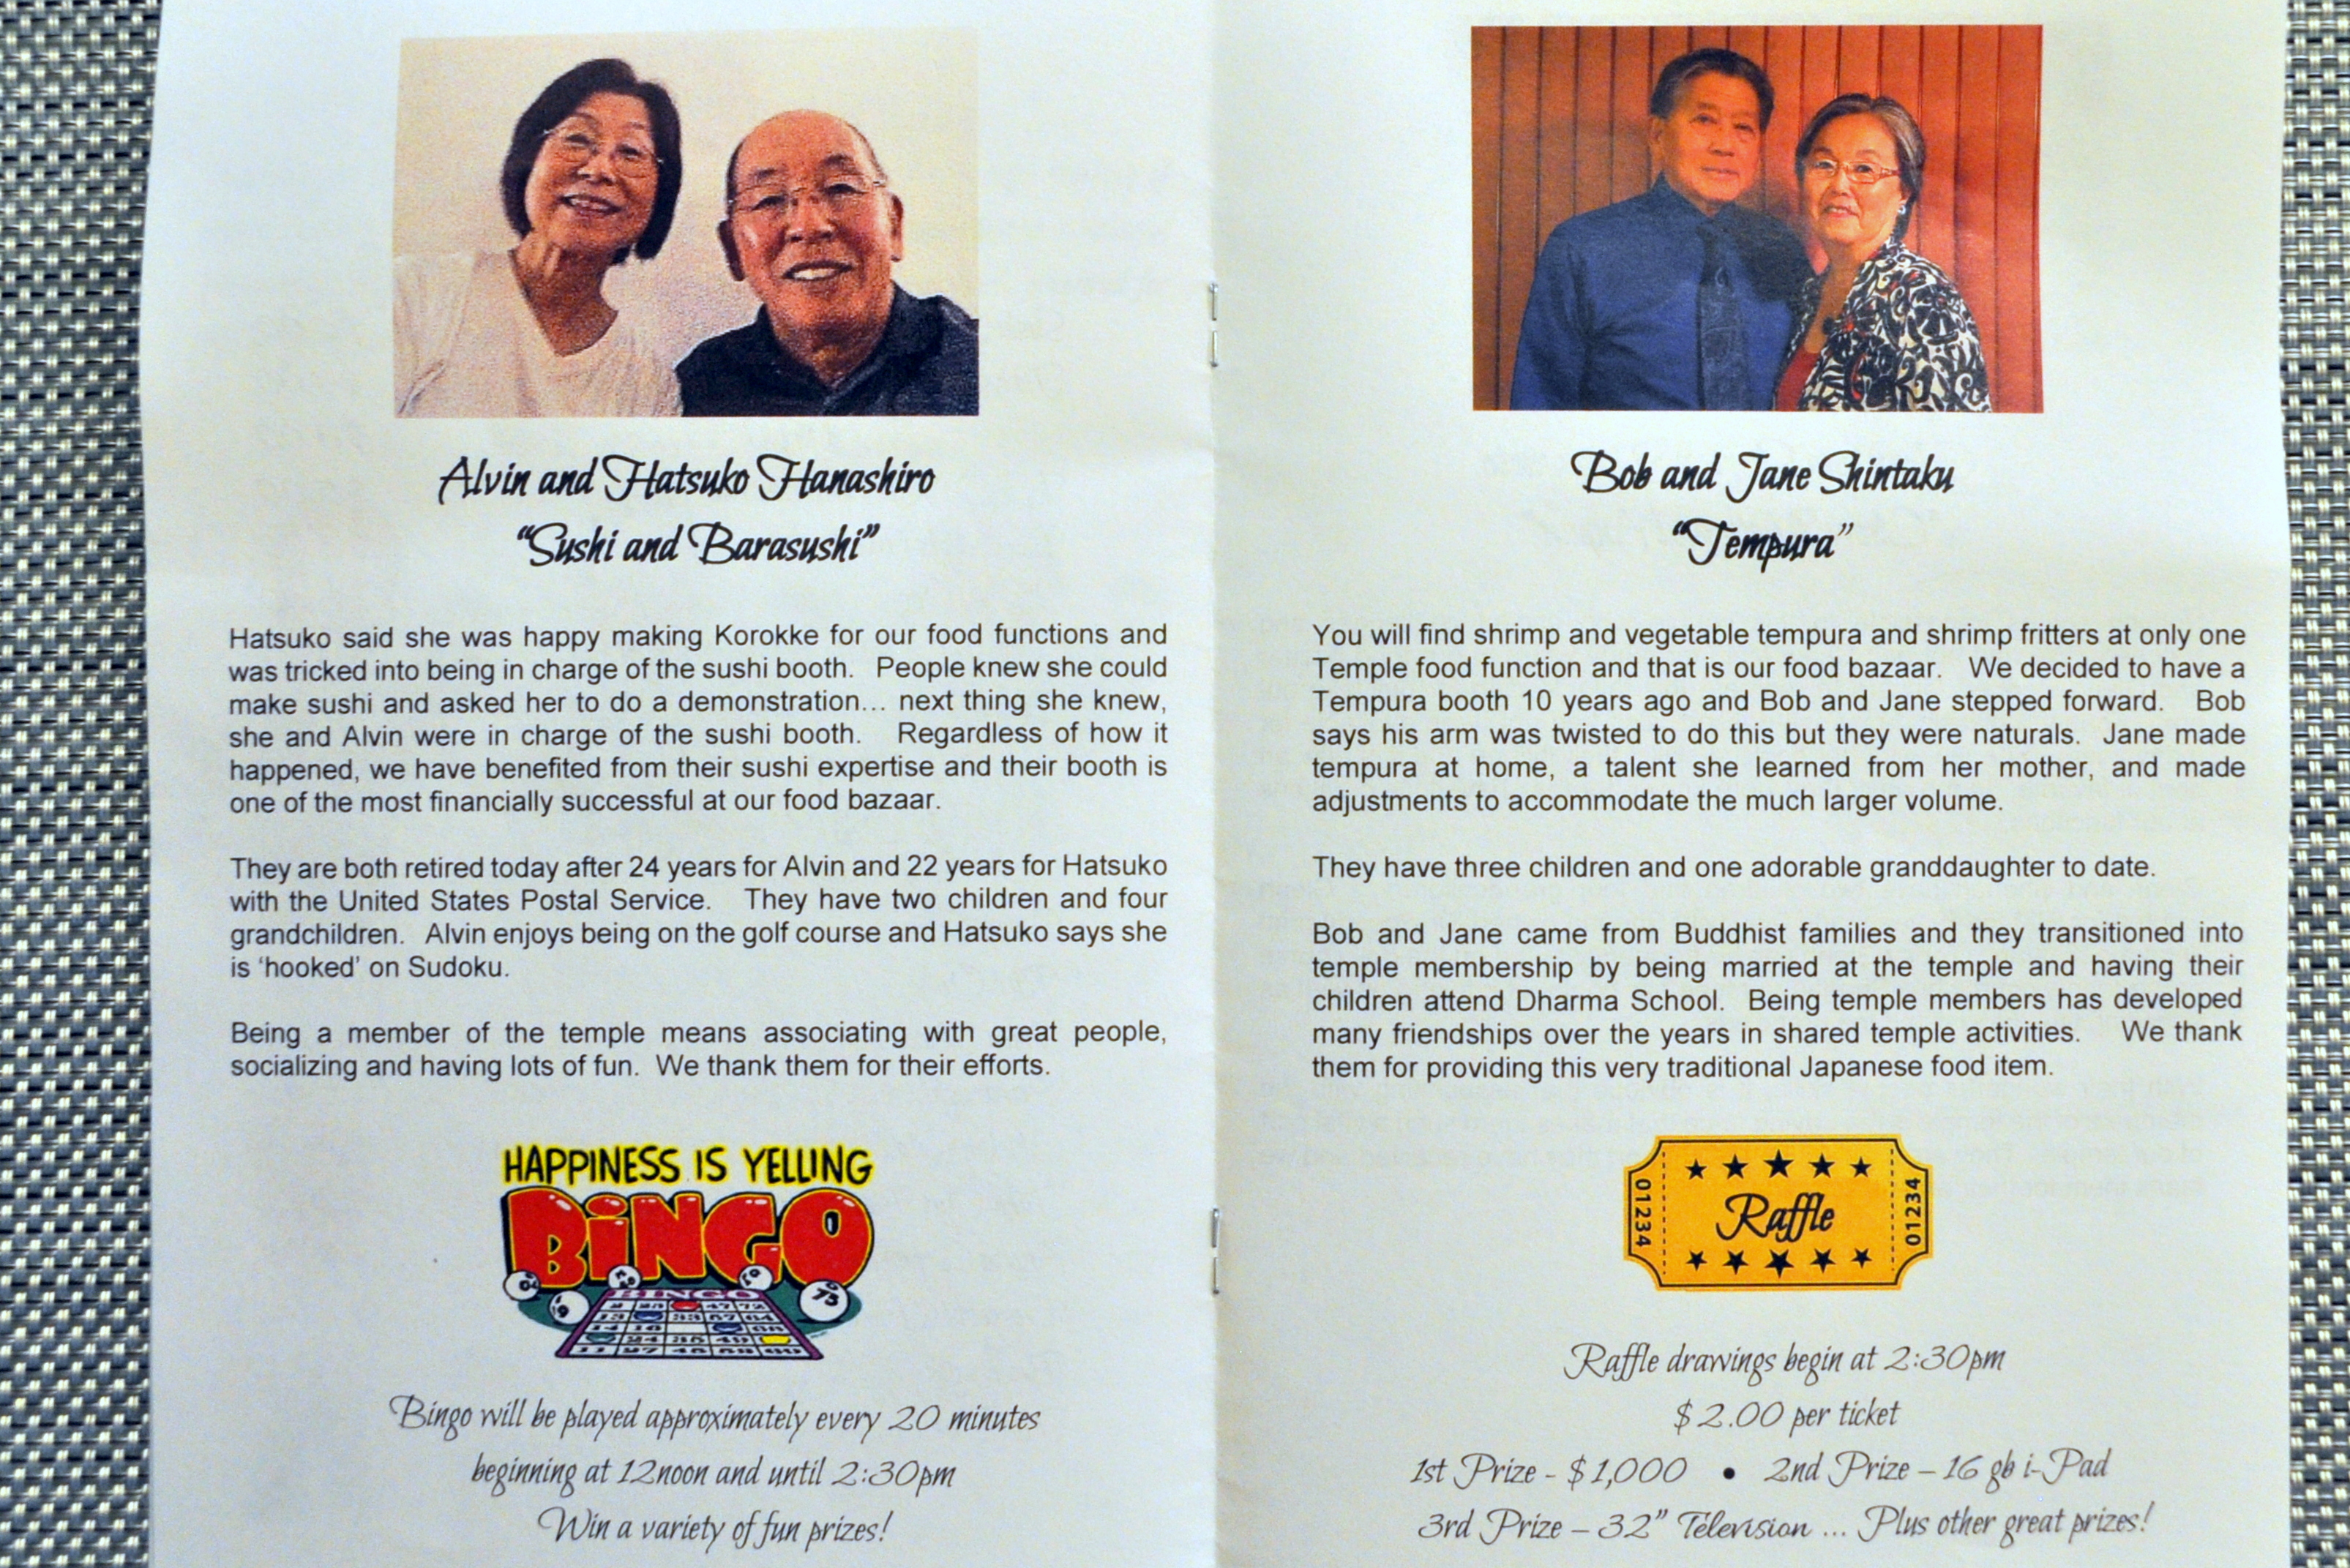 Alvin and Hatsuko Hanashiro
“Sushi and Barasushi”
Hatsuko said she was happy making Korokke for our food functions and
was tricked into being in charge of the sushi booth. People knew she could
make sushi and asked her to do a demonstration... next thing she knew,
she and Alvin were in charge of the sushi booth. Regardless of how it
happened, we have benefited from their sushi expertise and their booth is
one of the most financially successful at our food bazaar.
They are both retired today after 24 years for Alvin and 22 years for Hatsuko
with the United States Postal Service. They have two children and four
grandchildren. Alvin enjoys being on the golf course and Hatsuko says she
is ‘hooked’ on Sudoku.
Being a member of the temple means associating with great people,
socializing and having lots of fun. We thank them for their efforts.
HAPPINESS IS YELLING
BiNGO
75
BINGO
Bingo will be played approximately every 20 minutes
beginning at 12noon and until 2:30pm
Win a variety of fun prizes!
Bob and Jane Shintaku
“Tempura”
You will find shrimp and vegetable tempura and shrimp fritters at only one
Temple food function and that is our food bazaar. We decided to have a
Tempura booth 10 years ago and Bob and Jane stepped forward. Bob
says his arm was twisted to do this but they were naturals. Jane made
tempura at home, a talent she learned from her mother, and made
adjustments to accommodate the much larger volume.
They have three children and one adorable granddaughter to date.
Bob and Jane came from Buddhist families and they transitioned into
temple membership by being married at the temple and having their
children attend Dharma School. Being temple members has developed
many friendships over the years in shared temple activities. We thank
them for providing this very traditional Japanese food item.
01234
Raffle
01234
Raffle drawings begin at 2:30pm
$2.00 per ticket
1st Prize - $1,000 • 2nd Prize – 16 gb i-Pad
3rd Prize – 32” Television ... Plus other great prizes!